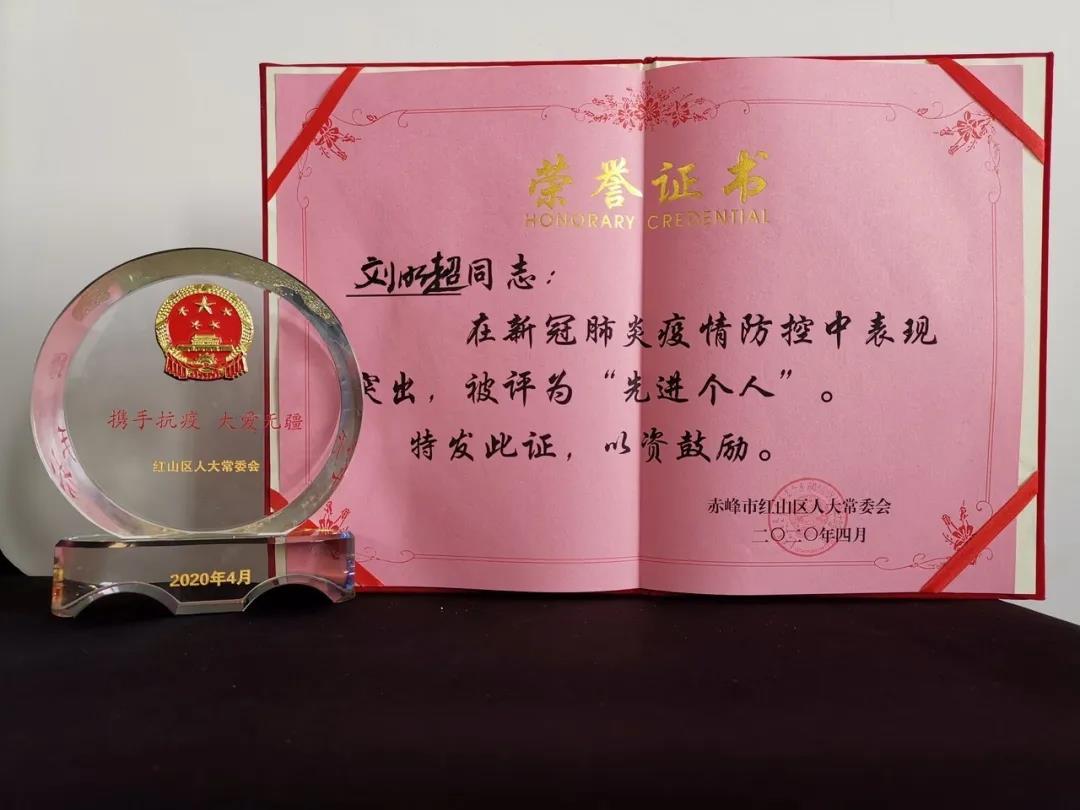 荣誉证书
HONORARY CREDENTIAL
刘昕超同志:
在新冠肺炎疫情防控中表现
突出,被评为“先进个人”。
特发此证,以资鼓励。
赤峰市红山区人大常委会
二〇二〇年四月
携手抗疫 大爱无疆
红山区人大常委会
2020年4月